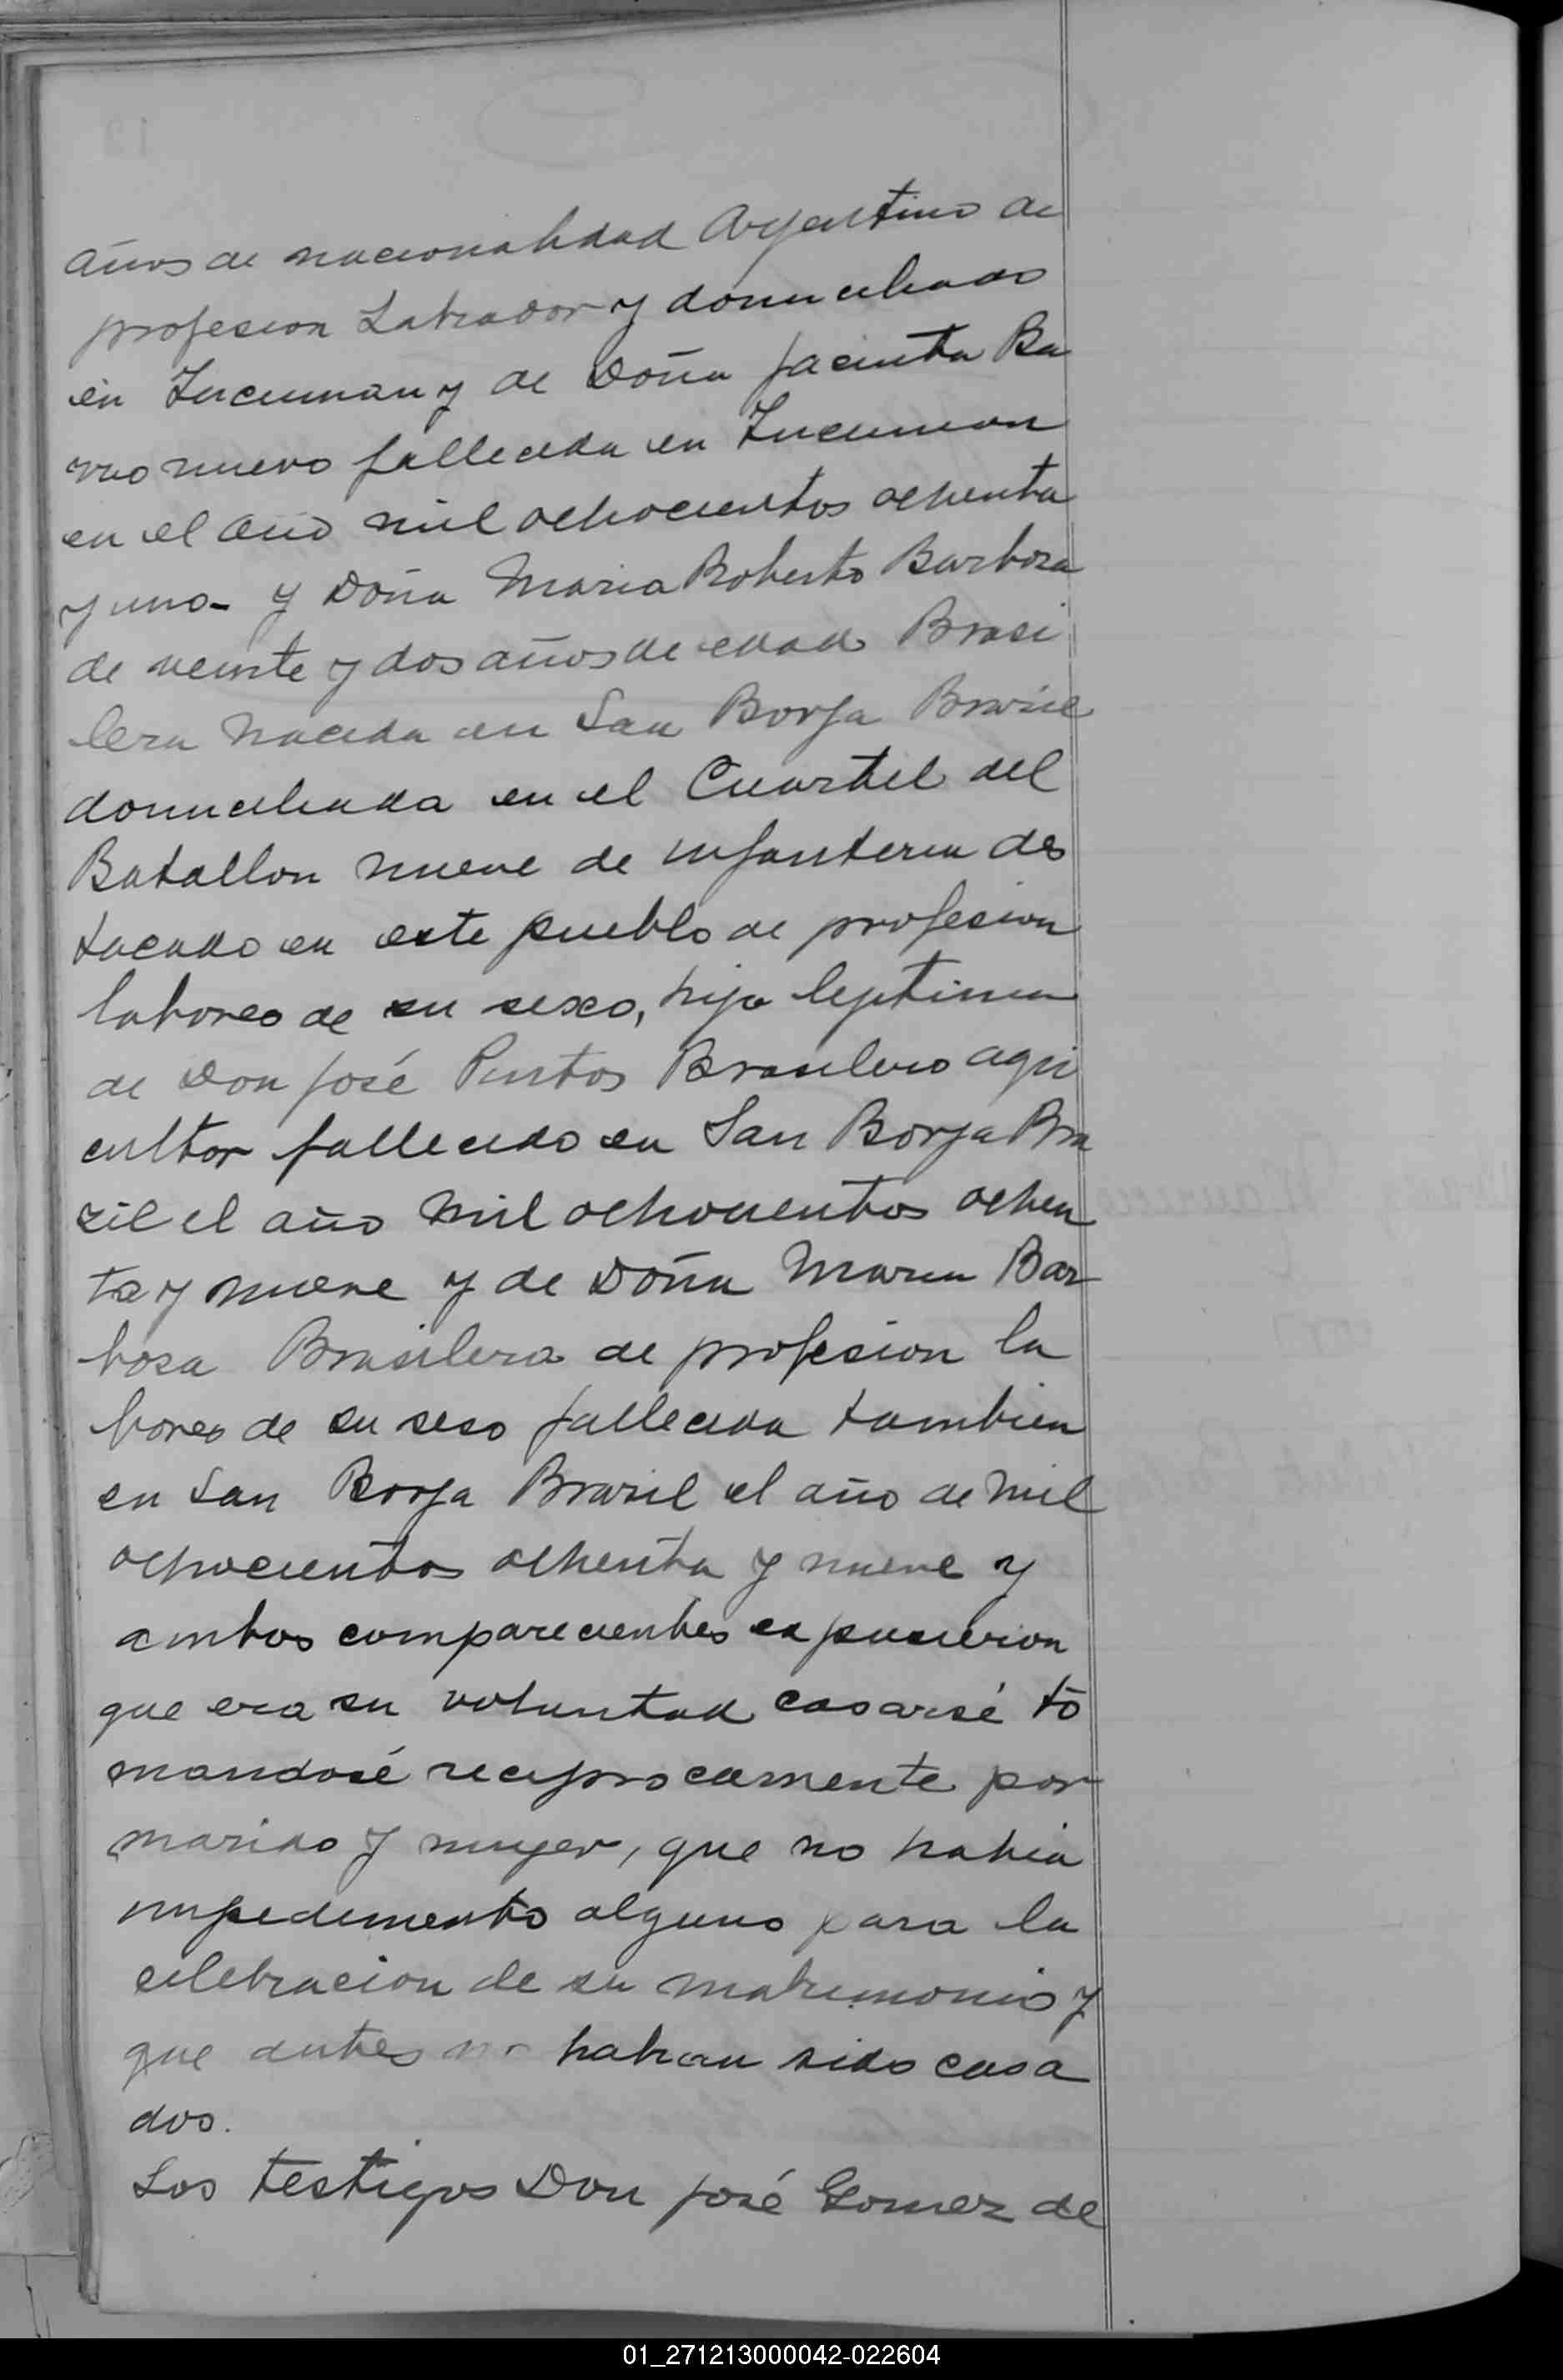 años de nacionalidad Argentino de
profesion Labrador y domiciliado
en Tucuman y de Doña Jacinta Ba
rrio nuevo fallecida en Tucuman
en el año mil ochocientos ochenta
y uno - y Doña Maria Roberto Barboza
de veinte y dos años de edad Brasi
lera nacida en San Borja Brazil
domiciliada en el Cuartel del
Batallon nueve de infanteria des
tacado en este pueblo de profesion
labores de su sexo, hija legitima
de Don José Pintos Brasilero agri
cultor fallecido en San Borja Bra
zil el año mil ochocientos ochen
ta y nueve y de Doña Maria Bar
bosa Brasilera de profesion la
bores de su seso fallecida tambien
en San Borja Brazil el año de mil
ochocientos ochenta y nueve y
ambos comparecientes expusieron
que era su voluntad casarsé to
mandosé reciprocamente por
marido y muger, que no habia
impedimento alguno para la
celebracion de su matrimonio y
que antes no habian sido casa
dos.
Los testigos Don José Gomez de
01_271213000042-022604